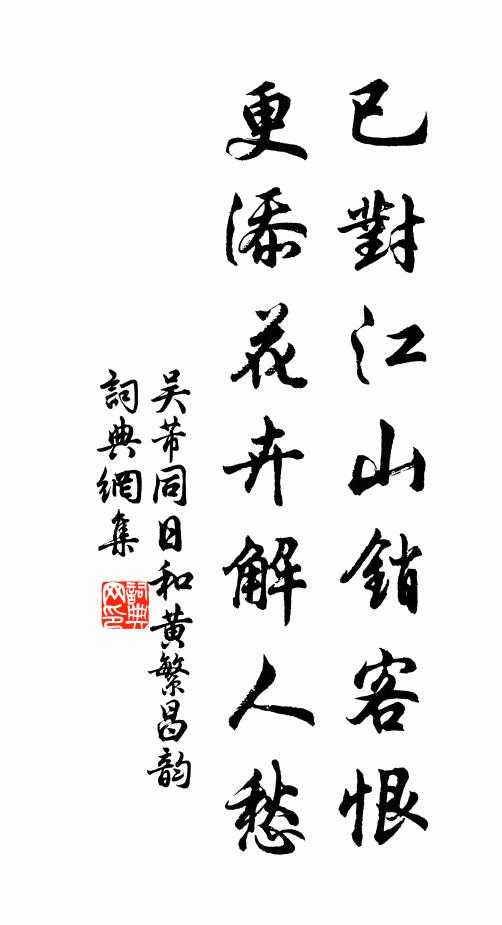 已對江山銷客恨
更添花卉解人愁
吴芾同日和黄繁昌韵
詞典網集
詞典网印